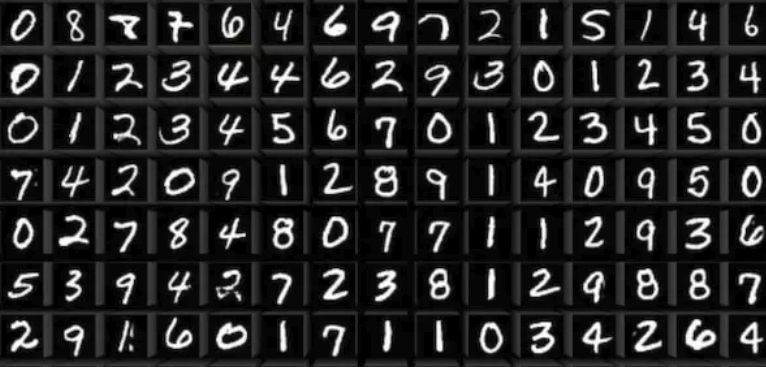 0 8 7 6 4 6 9 7 2 1 5 1 4 6
0 1 2 3 4 4 6 2 9 3 0 1 2 3 4
0 1 2 3 4 5 6 7 0 1 2 3 4 5 0
7 4 2 0 9 1 2 8 9 1 4 0 9 5 0
0 2 7 8 4 8 0 7 7 1 1 2 9 3 6
5 3 9 4 2 7 2 3 8 1 2 9 8 8 7
2 9 1 6 0 1 7 1 1 0 3 4 2 6 4